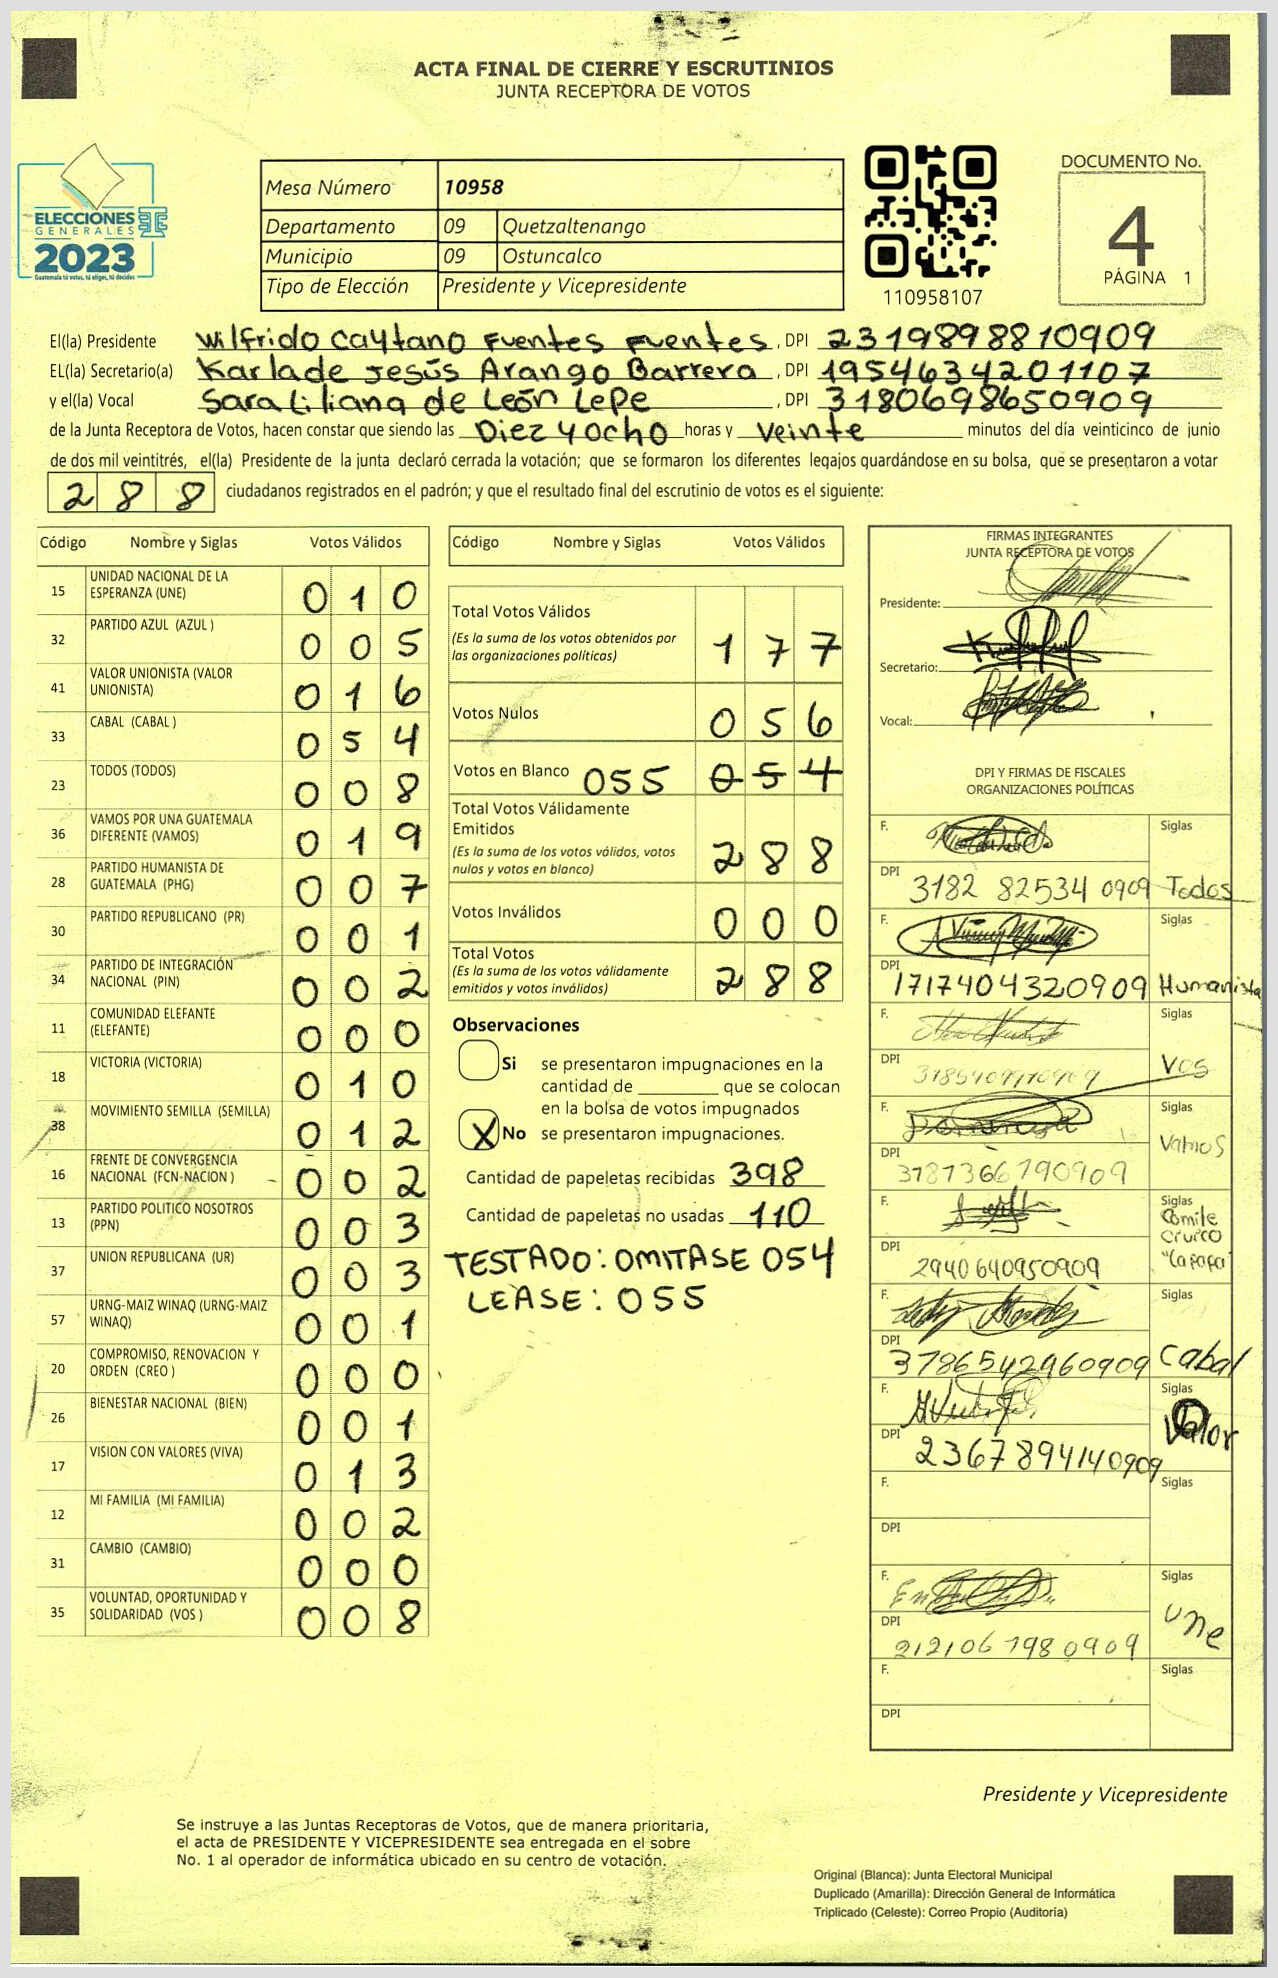 ACTA FINAL DE CIERRE Y ESCRUTINIOS
JUNTA RECEPTORA DE VOTOS
ELECCIONES
GENERALES
2023
Guatemala tú votas, tú eliges, tú decides
Mesa Número 10958
Departamento 09 Quetzaltenango
Municipio 09 Ostuncalco
Tipo de Elección Presidente y Vicepresidente
110958107
DOCUMENTO No.
4
PÁGINA 1
El(la) Presidente Wilfrido Caytano Fuentes Fuentes, DPI 2319898810909
EL(la) Secretario(a) Karla de Jesús Arango Barrera, DPI 1954634201107
y el(la) Vocal Sara Liliana de León Lepe, DPI 3180698650909
de la Junta Receptora de Votos, hacen constar que siendo las Diez y ocho horas y veinte minutos del día veinticinco de junio
de dos mil veintitrés, el(la) Presidente de la junta declaró cerrada la votación; que se formaron los diferentes legajos guardándose en su bolsa, que se presentaron a votar
288 ciudadanos registrados en el padrón; y que el resultado final del escrutinio de votos es el siguiente:
Código Nombre y Siglas Votos Válidos
15 UNIDAD NACIONAL DE LA
ESPERANZA (UNE) 010
32 PARTIDO AZUL (AZUL ) 005
41 VALOR UNIONISTA (VALOR
UNIONISTA) 016
33 CABAL (CABAL ) 054
23 TODOS (TODOS) 008
36 VAMOS POR UNA GUATEMALA
DIFERENTE (VAMOS) 019
28 PARTIDO HUMANISTA DE
GUATEMALA (PHG) 007
30 PARTIDO REPUBLICANO (PR) 001
34 PARTIDO DE INTEGRACIÓN
NACIONAL (PIN) 002
11 COMUNIDAD ELEFANTE
(ELEFANTE) 000
18 VICTORIA (VICTORIA) 010
38 MOVIMIENTO SEMILLA (SEMILLA) 012
16 FRENTE DE CONVERGENCIA
NACIONAL (FCN-NACION ) 002
13 PARTIDO POLITICO NOSOTROS
(PPN) 003
37 UNION REPUBLICANA (UR) 003
57 URNG-MAIZ WINAQ (URNG-MAIZ
WINAQ) 001
20 COMPROMISO, RENOVACION Y
ORDEN (CREO ) 000
26 BIENESTAR NACIONAL (BIEN) 001
17 VISION CON VALORES (VIVA) 013
12 MI FAMILIA (MI FAMILIA) 002
31 CAMBIO (CAMBIO) 000
35 VOLUNTAD, OPORTUNIDAD Y
SOLIDARIDAD (VOS ) 008
Código Nombre y Siglas Votos Válidos
Total Votos Válidos
(Es la suma de los votos obtenidos por
las organizaciones políticas) 177
Votos Nulos 056
Votos en Blanco 055 054
Total Votos Válidamente
Emitidos
(Es la suma de los votos válidos, votos
nulos y votos en blanco) 288
Votos Inválidos 000
Total Votos
(Es la suma de los votos válidamente
emitidos y votos inválidos) 288
Observaciones
Si se presentaron impugnaciones en la
cantidad de ________ que se colocan
en la bolsa de votos impugnados
X No se presentaron impugnaciones.
Cantidad de papeletas recibidas 398
Cantidad de papeletas no usadas 110
TESTADO: OMITASE 054
LEASE: 055
FIRMAS INTEGRANTES
JUNTA RECEPTORA DE VOTOS
Presidente:
Secretario:
Vocal:
DPI Y FIRMAS DE FISCALES
ORGANIZACIONES POLÍTICAS
F. Siglas
DPI 3182 82534 0909 Todos
F. Siglas
DPI 1717404320909 Humanista
F. Siglas
DPI VOS
F. Siglas
DPI 3787366790909 Vamos
F. Siglas
Comite
Civico
"La papa"
DPI 2940640950909
F. Siglas
DPI 3786542960909 Cabal
F. Siglas
Valor
DPI 2367894140909
F. Siglas
DPI
F. Siglas
DPI 2121061980909 Une
F. Siglas
DPI
Presidente y Vicepresidente
Se instruye a las Juntas Receptoras de Votos, que de manera prioritaria,
el acta de PRESIDENTE Y VICEPRESIDENTE sea entregada en el sobre
No. 1 al operador de informática ubicado en su centro de votación.
Original (Blanca): Junta Electoral Municipal
Duplicado (Amarilla): Dirección General de Informática
Triplicado (Celeste): Correo Propio (Auditoría)